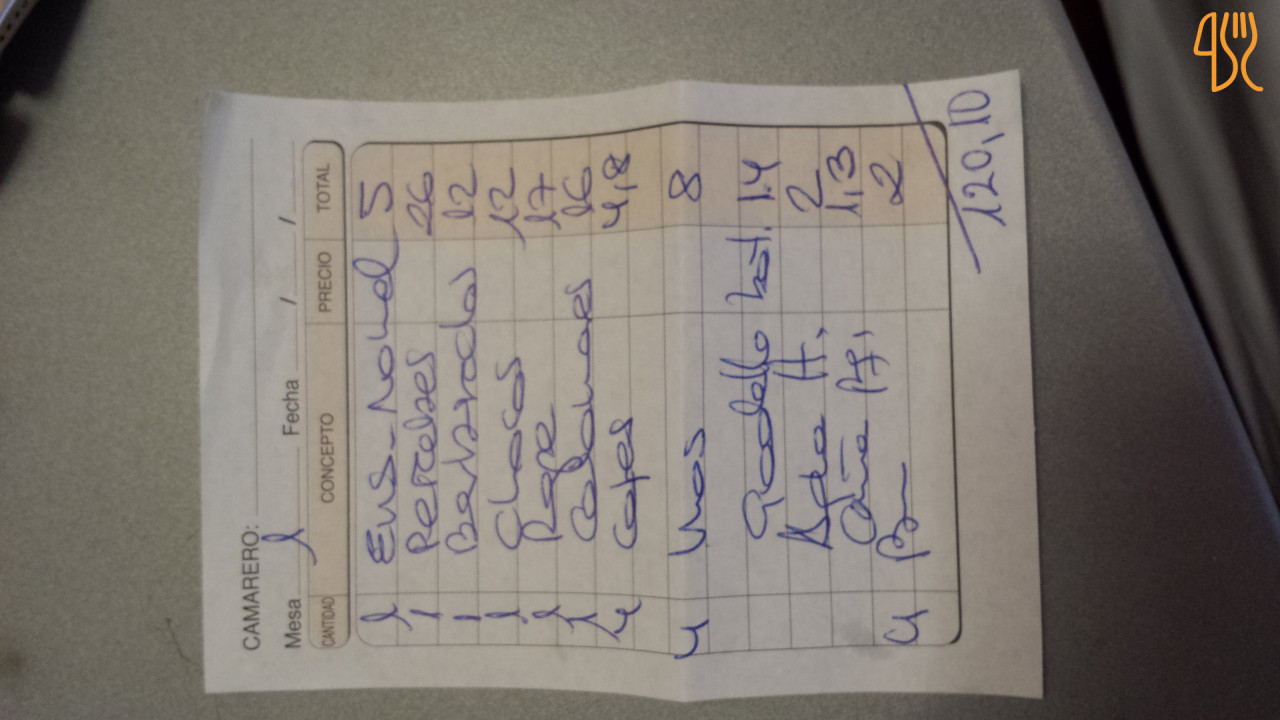 CAMARERO:
Mesa 1 Fecha / /
CANTIDAD CONCEPTO PRECIO TOTAL
1 Ens-Nouel 5
1 Percebes 26
1 Berberechos 12
1 Chocos 12
1 Rape 17
1 Calamares 16
4 Cafes 4,8
4 Vinos 8
Godello bot. 14
Agua H. 2
Caña 1,3
4 Pan 2
120,10